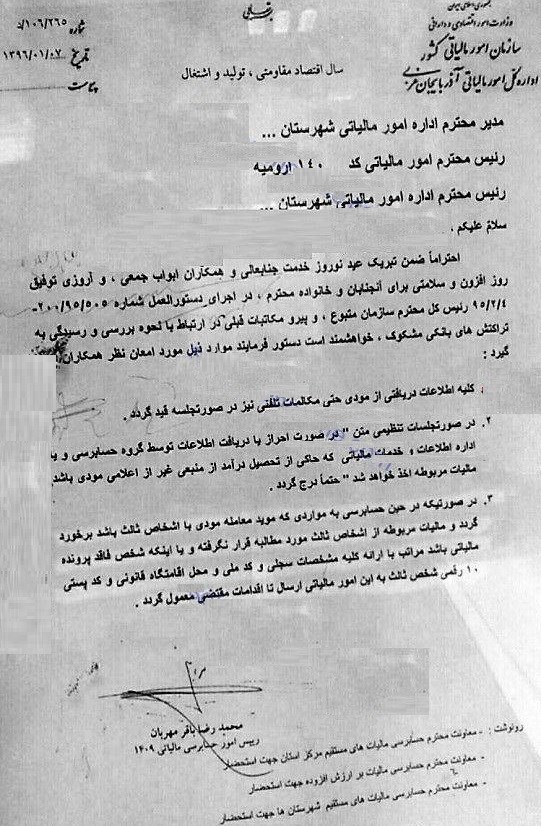 جمهوری اسلامی ایران
وزارت امور اقتصادی و دارائی
سازمان امور مالیاتی کشور
اداره کل امور مالیاتی آذربایجان غربی
شماره ۱۰۶/۲۶۵/د
تاریخ ۱۳۹۶/۰۱/۰۷
پیوست
سال اقتصاد مقاومتی ، تولید و اشتغال
مدیر محترم اداره امور مالیاتی شهرستان ...
رئیس محترم امور مالیاتی کد ۱۴۰ ارومیه
رئیس محترم اداره امور مالیاتی شهرستان ...
سلام علیکم .
احتراماً ضمن تبریک عید نوروز خدمت جنابعالی و همکاران ابواب جمعی ، و آرزوی توفیق
روز افزون و سلامتی برای آنجنابان و خانواده محترم ، در اجرای دستورالعمل شماره ۲۰۰/۹۵/۵۰۵-
۹۵/۲/۴ رئیس کل محترم سازمان متبوع ، و پیرو مکاتبات قبلی در ارتباط با نحوه بررسی و رسیدگی به
تراکنش های بانکی مشکوک ، خواهشمند است دستور فرمایند موارد ذیل مورد امعان نظر همکاران
گیرد :
کلیه اطلاعات دریافتی از مودی حتی مکالمات تلفنی نیز در صورتجلسه قید گردد .
۲. در صورتجلسات تنظیمی متن " در صورت احراز یا دریافت اطلاعات توسط گروه حسابرسی و یا
اداره اطلاعات و خدمات مالیاتی که حاکی از تحصیل درآمد از منبعی غیر از اعلامی مودی باشد
مالیات مربوطه اخذ خواهد شد " حتماً درج گردد .
۳. در صورتیکه در حین حسابرسی به مواردی که موید معامله مودی با اشخاص ثالث باشد برخورد
گردد و مالیات مربوطه از اشخاص ثالث مورد مطالبه قرار نگرفته و یا اینکه شخص فاقد پرونده
مالیاتی باشد مراتب با ارائه کلیه مشخصات سجلی و کد ملی و محل اقامتگاه قانونی و کد پستی
۱۰ رقمی شخص ثالث به این امور مالیاتی ارسال تا اقدامات مقتضی معمول گردد .
محمد رضا باقر مهربان
رییس امور حسابرسی مالیاتی ۱۴۰۹
رونوشت : - معاونت محترم حسابرسی مالیات های مستقیم مرکز استان جهت استحضار
- معاونت محترم حسابرسی مالیات بر ارزش افزوده جهت استحضار
- معاونت محترم حسابرسی مالیات های مستقیم شهرستان ها جهت استحضار